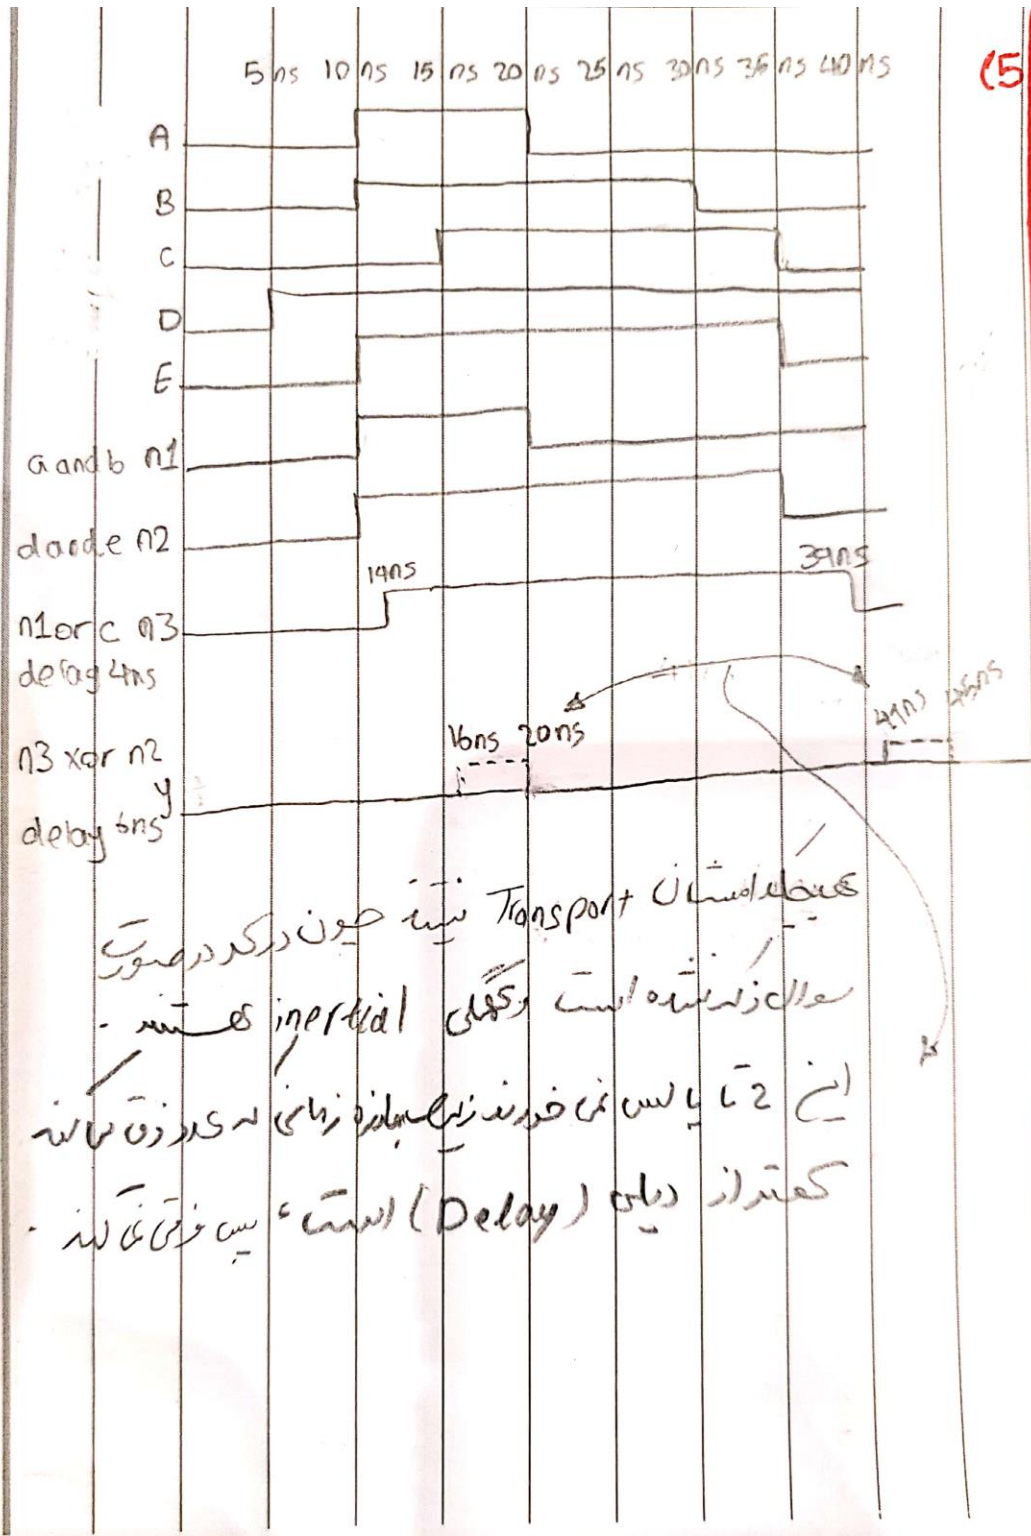 5ns 10ns 15ns 20ns 25ns 30ns 35ns 40ns
(5
A
B
C
D
E
a and b n1
d and e n2
14ns 39ns
n1 or c n3
delay 4ns
16ns 20ns 41ns 45ns
n3 xor n2
y
delay 6ns
هیچکدامشان Transport نیستند چون در کد در صورت
سوال زده نشده است و همگی inertial هستند.
این 2 تا پالس نمی خورند زیرا بازه زمانی که عدد فرق می کند
کمتر از دیلی (Delay) است، پس فرقی نمی کند.